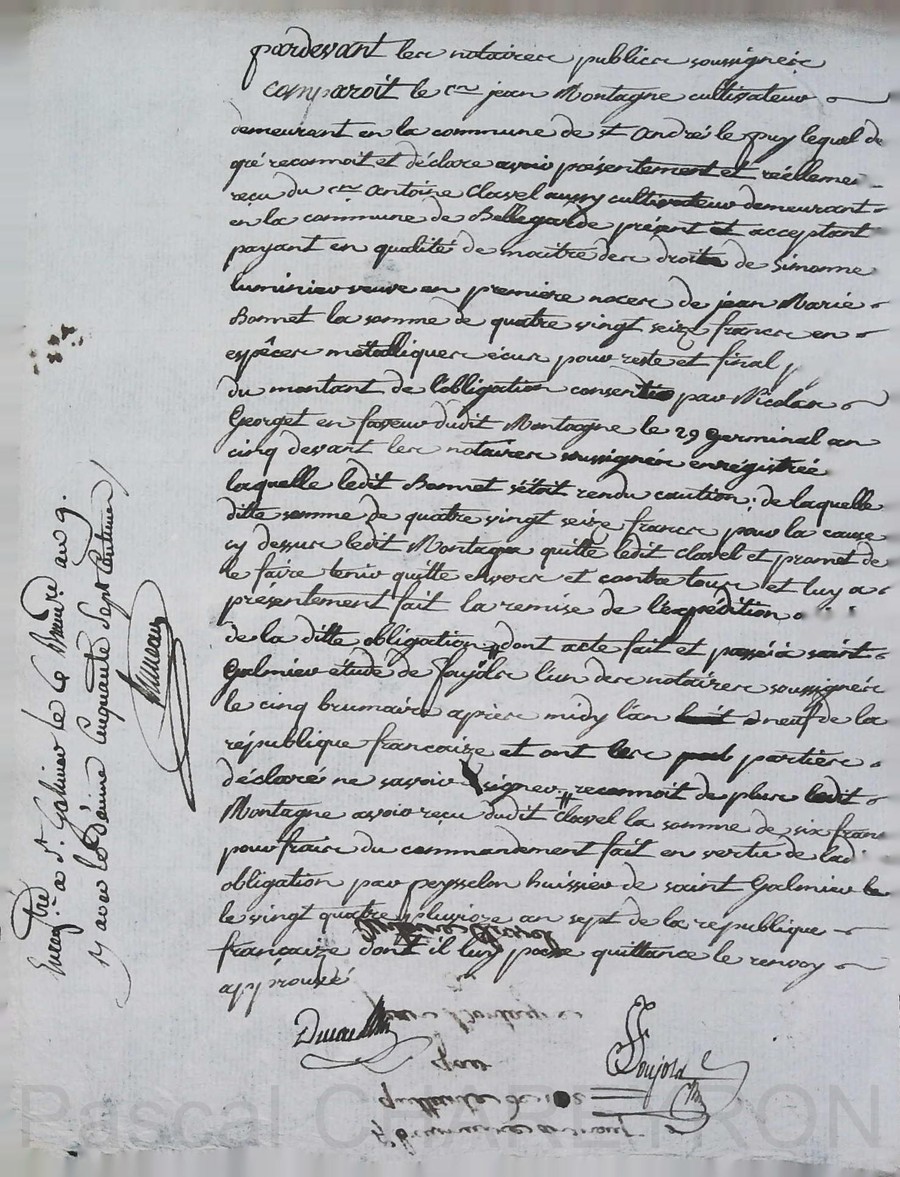 pardevant les notaires publics soussignés
comparoit le cen jean Montagne cultivateur
demeurant en la commune de st André le puy lequel de
gré reconnoit et déclare avoir présentement et réellemen
reçu du cen Antoine Clavel aussy cultivateur demeurant
en la commune de Bellegarde présent et acceptant
payant en qualité de maitre des droits de simonne
luminier veuve en première noces de jean Marie
Bonnet la somme de quatre vingt seize francs en
espèces métalliques écus pour reste et final
du montant de l'obligation consentie par Nicolas
Georget en faveur dudit Montagne le 29 germinal an
cinq devant les notaires soussignés enrégistrée
laquelle ledit Bonnet s'étoit rendu caution; de laquelle
ditte somme de quatre vingt seize francs pour la cause
cy dessus ledit Montagne quitte ledit clavel et promet de
le faire tenir quitte envers et contre tous et luy a
présentement fait la remise de l'expédition
de la ditte obligation, dont acte fait et passé à saint
Galmier étude de foujols l'un des notaires soussignés
le cinq brumaire après midy l'an huit neuf de la
république francoaize et ont les parties
déclaré ne savoir signer, reconnoit de plus ledit
Montagne avoir reçu dudit Clavel la somme de six franc
pour frais du commandement fait en vertu de lad
obligation par peysselon huissier de saint Galmier le
le vingt quatre pluvioze an sept de la république
francaize dont il luy passe quittance le renvoy
approuvé
Antoine Clavel
jean Montagne
pour
quittance de 102
5 brumaire an neuf
Foujols
Enregtré à St Galmier le 6 Brumre an 9.
Rx avec le décime Cinquante Sept Centimes